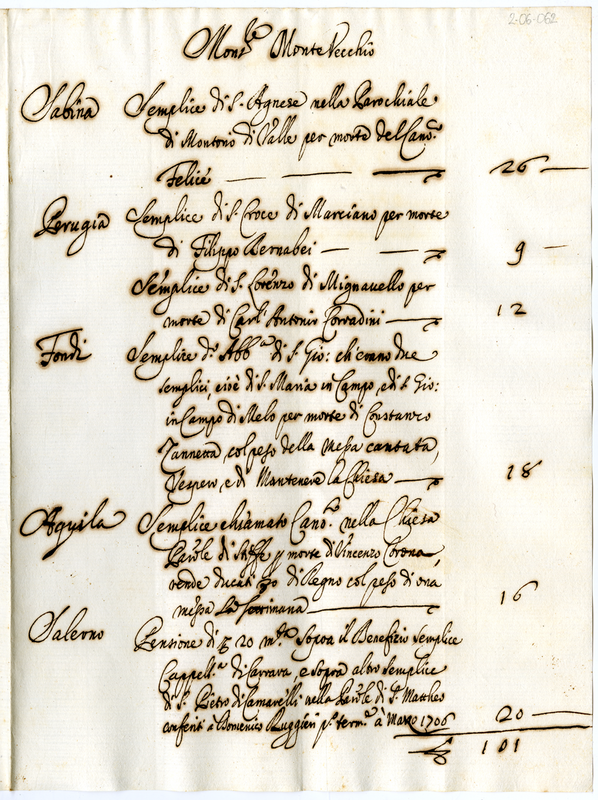 2.06.062
Mons.re Montevecchio
Sabina Semplice di S. Agnese nella Parochiale
di Montorio di Valle per morte del Can.o
Felice 26
Perugia Semplice di S. Croce di Marciano per morte
di Filippo Bernabei 9
Semplice di S. Lorenzo di Mignavello per
morte di Carl'Antonio Corradini 12
Fondi Semplice di S. Gio: ch'erano due
semplici, cioè di S. Maria in Campo, e di S. Gio:
in Campo di Melo per morte di Costanzo
Zannetta, col peso della Messa cantata,
Vespero, e di Mantenere la Chiesa 18
Aquila Semplice chiamato Can.o nella Chiesa
Par.le di morte di Vincenzo Corona,
rende ducati di Regno col peso di una
messa la settimana 16
Salerno Pensione di 20 m.ta Sopra il Benefizio Semplice
di Carrara, e sopra altro Semplice
di S. Pietro di Camarelli nella Par.le di S. Mattheo
conferiti a Domenico Ruggieri p.o term.e à Marzo 1706 20
101